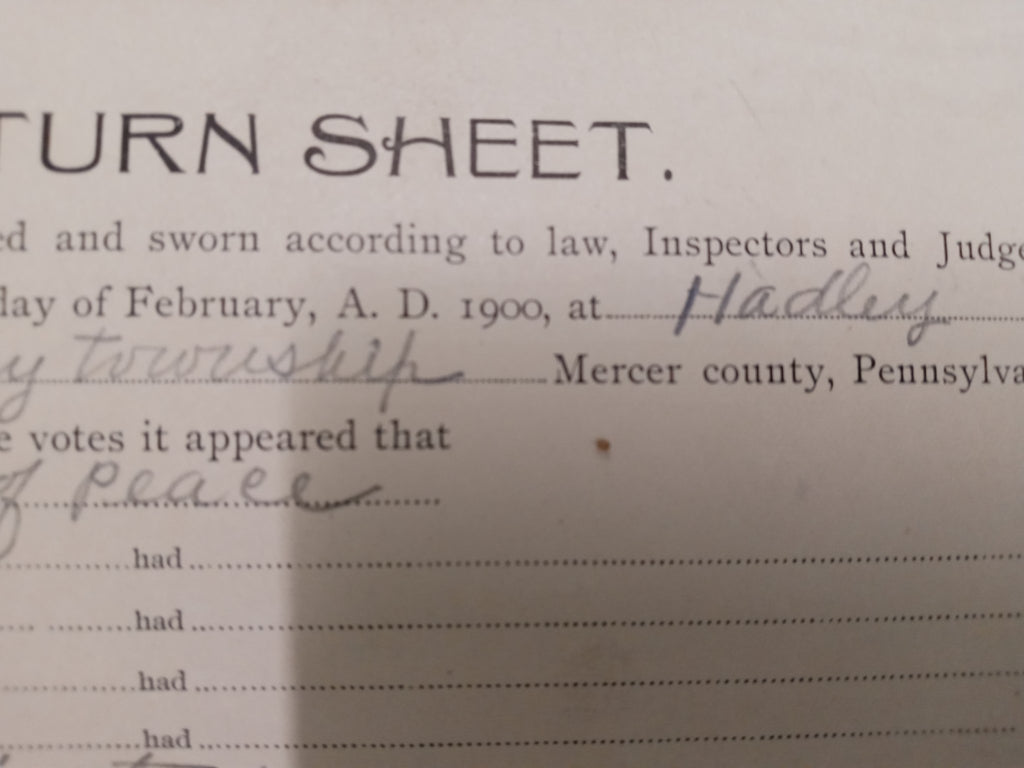 TURN SHEET.
ed and sworn according to law, Inspectors and Judge
day of February, A. D. 1900, at Hadley
y township Mercer county, Pennsylva
e votes it appeared that
of peace
had
had
had
had